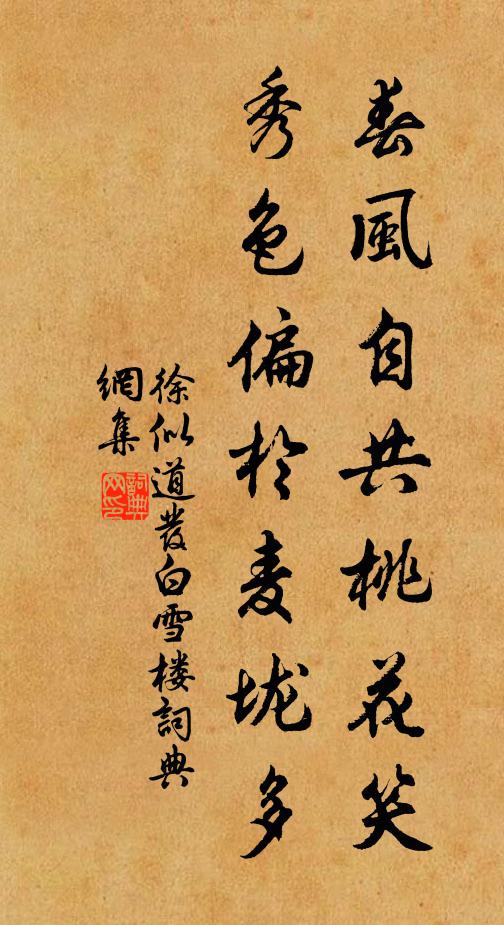 春風自共桃花笑
秀色偏於麦垅多
徐似道發白雪楼詞典
網集
詞典
网印